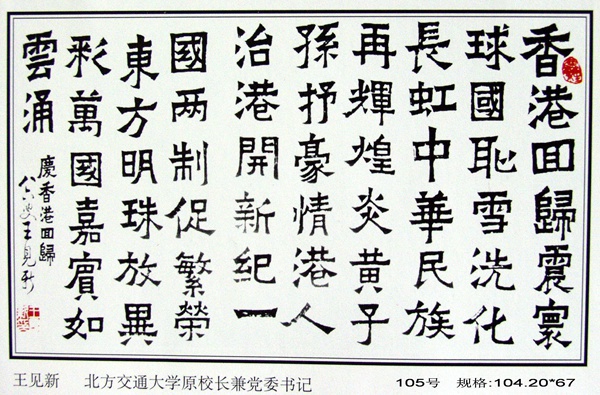 香港回歸震寰
球國耻雪洗化
長虹中華民族
再輝煌炎黄子
孫抒豪情港人
治港開新紀一
國两制促繁榮
東方明珠放異
彩萬國嘉賓如
雲涌
慶香港回歸
八六叟王見新
王见新 北方交通大学原校长兼党委书记 105号 规格:104.20*67